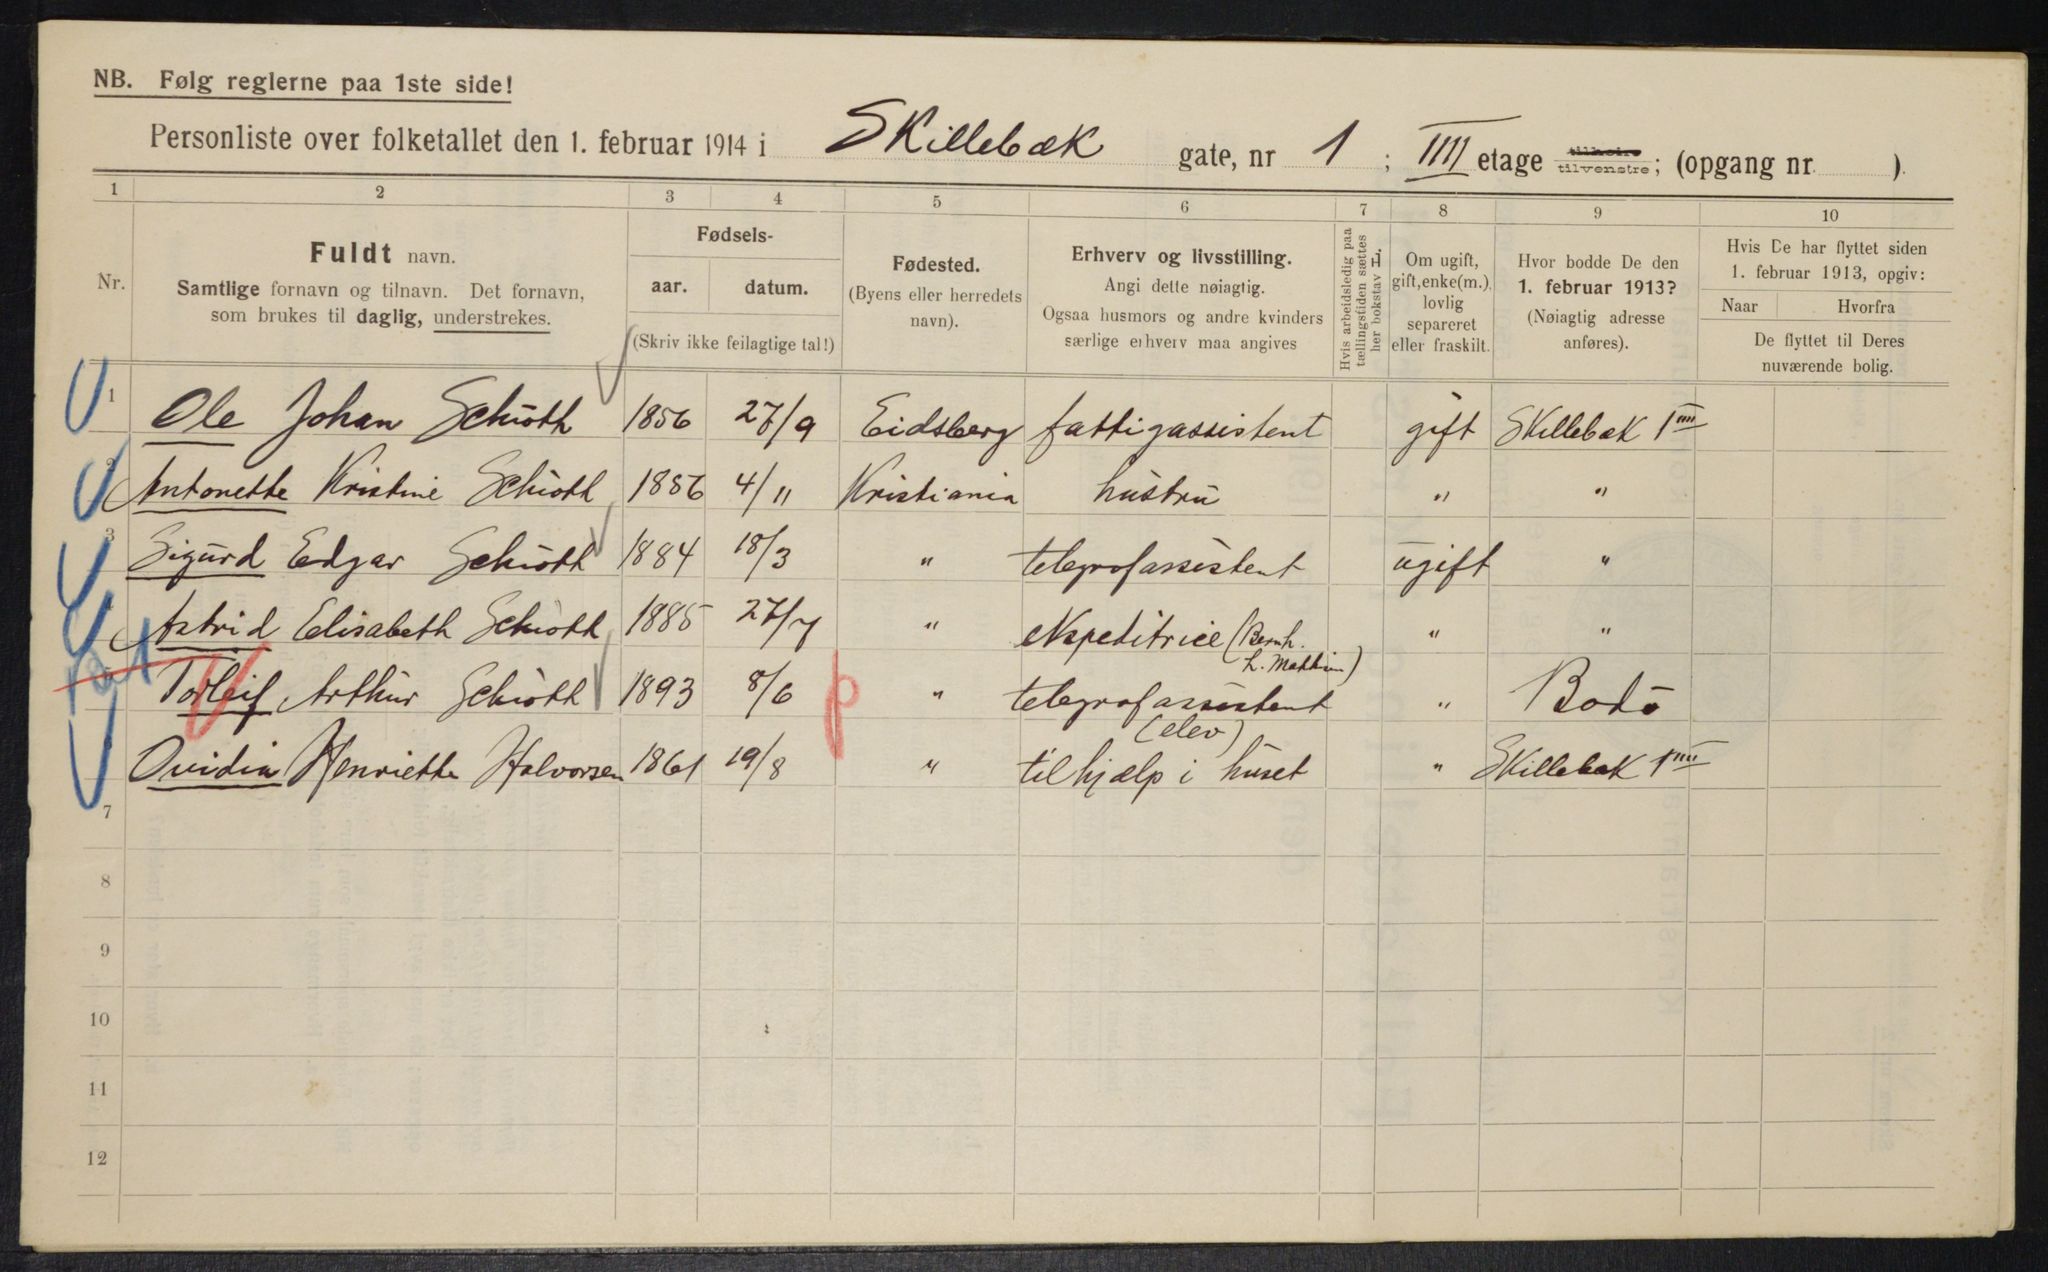 NB. Følg reglerne paa 1ste side!
Personliste over folketallet den 1. februar 1914 i Skillebæk gate, nr 1 ; IIII etage tilhøire tilvenstre; (opgang nr. ).
1 2 3 4 5 6 7 8 9 10
Nr.
Fuldt navn.
Samtlige fornavn og tilnavn. Det fornavn,
som brukes til daglig, understrekes.
Fødsels-
aar. datum.
(Skriv ikke feilagtige tal!)
Fødested.
(Byens eller herredets
navn).
Erhverv og livsstilling.
Angi dette nøiagtig.
Ogsaa husmors og andre kvinders
særlige erhverv maa angives
Hvis arbeidsledig paa
tællingstiden sættes
her bokstav L.
Om ugift,
gift, enke(m.),
lovlig
separeret
eller fraskilt.
Hvor bodde De den
1. februar 1913?
(Nøiagtig adresse
anføres).
Hvis De har flyttet siden
1. februar 1913, opgiv:
Naar Hvorfra
De flyttet til Deres
nuværende bolig.
1 Ole Johan Schiøth 1856 27/9 Eidsberg fattigassistent gift Skillebæk 1 IIII
2 Antonette Kristine Schiøth 1856 4/11 Kristiania hustru " "
3 Sigurd Edgar Schiøth 1884 18/3 " telegrafassistent ugift "
4 Astrid Elisabeth Schiøth 1885 27/7 " ekspeditrice (Bernh.
" "
5 Torleif Arthur Schiøth 1893 8/6 " telegrafassistent " Bodø
(elev)
6 Ovidia Henriette Halvorsen 1861 19/8 " til hjælp i huset " Skillebæk 1 IIII
7
8
9
10
11
12